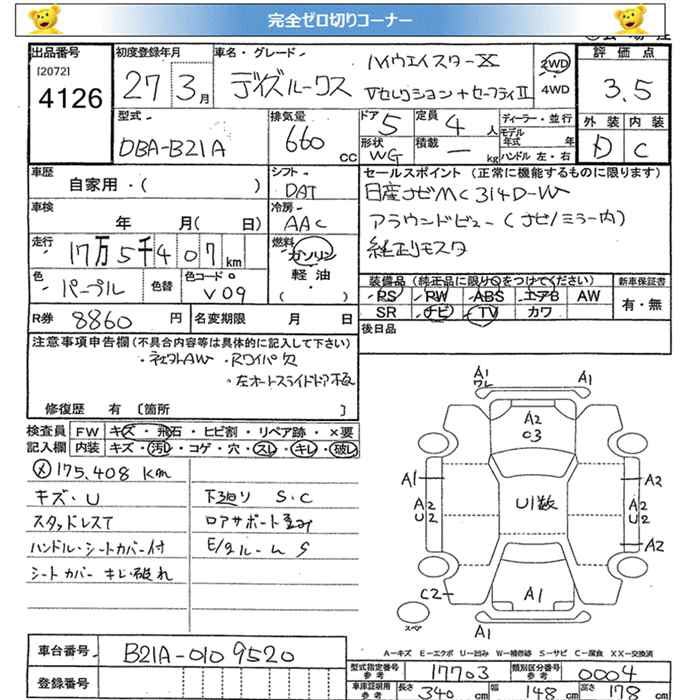 完全ゼロ切りコーナー
出品番号 初度登録年月 車名・グレード 評価点
[2072]
4126 27 3月 デイズルークス ハイウェイスターX 2WD 3.5
Vセレクション+セーフティII 4WD
型式 排気量 ドア 5 定員 4人 ディーラー・並行 外装 内装
DBA-B21A 660cc 形状 WG 積載 ー kg モデル年式 年 D C
ハンドル 左・右
車歴 シフト セールスポイント(正常に機能するものに限ります)
自家用・( ) DAT 日産ナビMC314D-W
車検 冷房 アラウンドビュー(ナビ/ミラー内)
年 月( 日) AAC 純正リモスタ
走行 17万5千407km 燃料 ガソリン
軽油・
( )
色 パープル 色替 色コードNo V09
装備品(純正品に限り○をつけてください) 新車保証書
PS PW ABS エアB AW 有・無
SR ナビ TV カワ
R券 8860円 名変期限 月 日 後日品
注意事項申告欄(不具合内容等は具体的に記入して下さい)
・社外AW ・Rワイパ欠
・左オートスライドドア
修復歴 有 [箇所 ]
検査員 FW キズ・飛石・ヒビ割・リペア跡・×要
記入欄 内装 キズ・汚レ・コゲ・穴・スレ・キレ・破レ
175,408km
キズ・U 下廻り S.C
スタッドレスT ロアサポート
ハンドル・シートカバー付 E/gルームS
シートカバー キレ破れ
A1
A1
A2
A1
A2
U2
A2
U2
A2
A2
C2
A1
A1
スペア
A-キズ E-エクボ U-凹み W-補修跡 S-サビ C-腐食 XX-交換済
車台番号 B21A-0109520
登録番号
型式指定番号 参考 17703 類別区分番号 参考 0004
車庫証明用 参考 長さ 340cm 幅 148cm 高さ 178cm